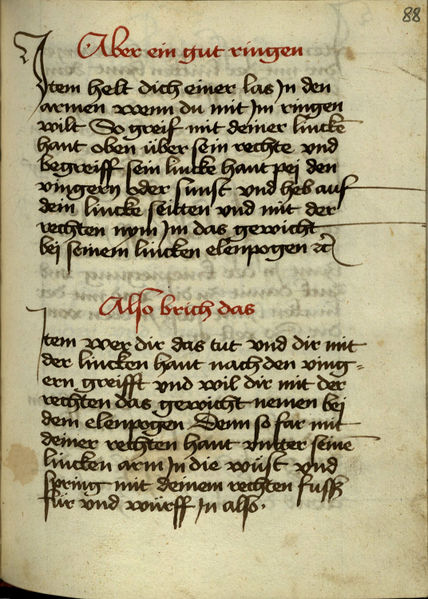 88
Aber ein gut ringen
Item helt dich einer las In den
armen wenn du mit Im ringen
wilt So greif mit deiner lincke
hant oben über sein rechte vnd
begreiff sein lincke hant pej den
vingern oder sunst vnd heb auf
dein lincke seitten vnd mit der
rechten nym Im das gewicht
bei seinem lincken elenpogen etc
Also brich das
Item wer dir das tut vnd dir mit
der lincken hant nach den ving=
ern greifft vnd wil dir mit der
rechten das gewicht nemen bej
dem elenpogen Denn so far mit
deiner rechten hant vntter seine
lincken arm In die wüst vnd
spring mit deinem rechten fuss
für vnd würff In also.